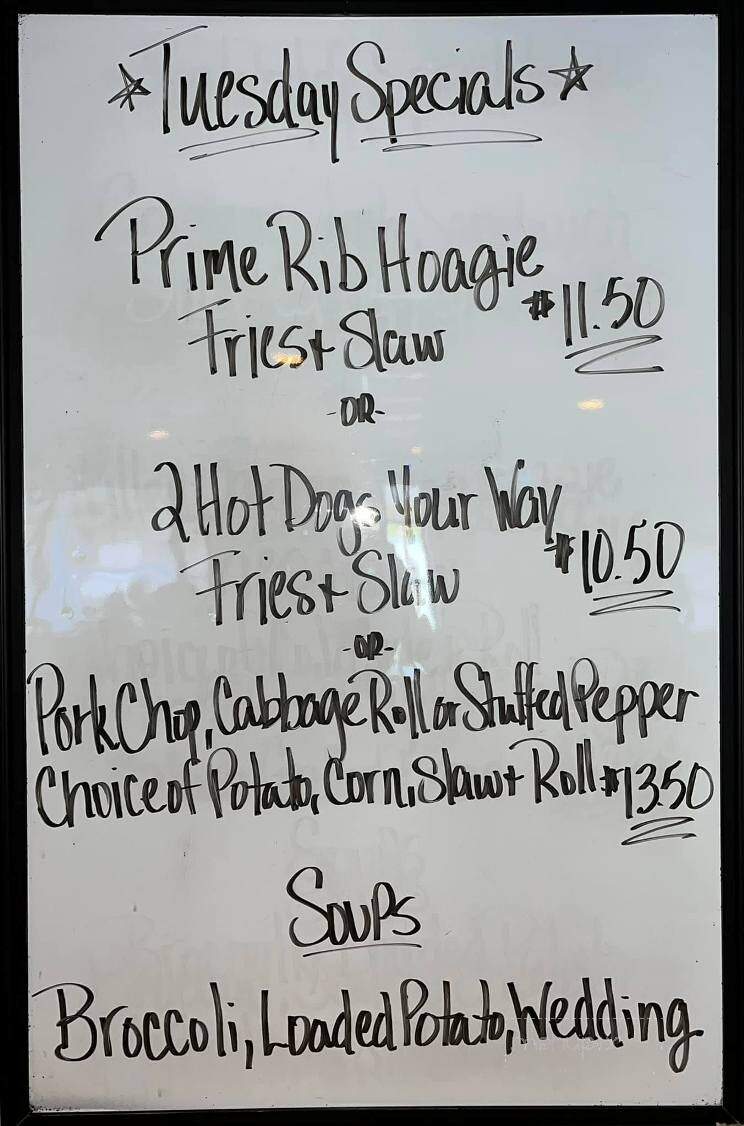 ☆Tuesday Specials☆
Prime Rib Hoagie
Fries + Slaw $11.50
-OR-
2 Hot Dogs Your Way
Fries + Slaw $10.50
-OR-
Pork Chop, Cabbage Roll or Stuffed Pepper
Choice of Potato, Corn, Slaw + Roll $13.50
Soups
Broccoli, Loaded Potato, Wedding